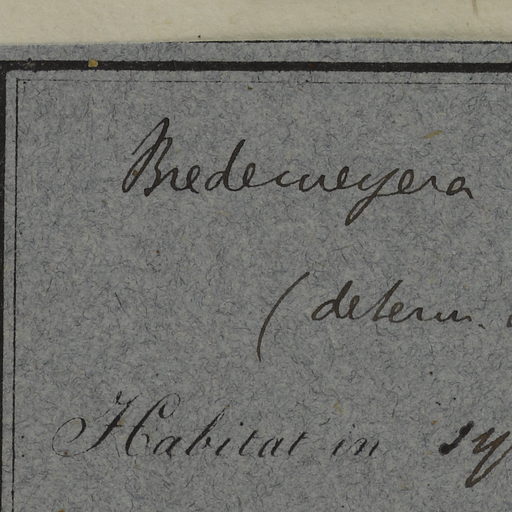 Bredemeyera
(determ.
Habitat in sy